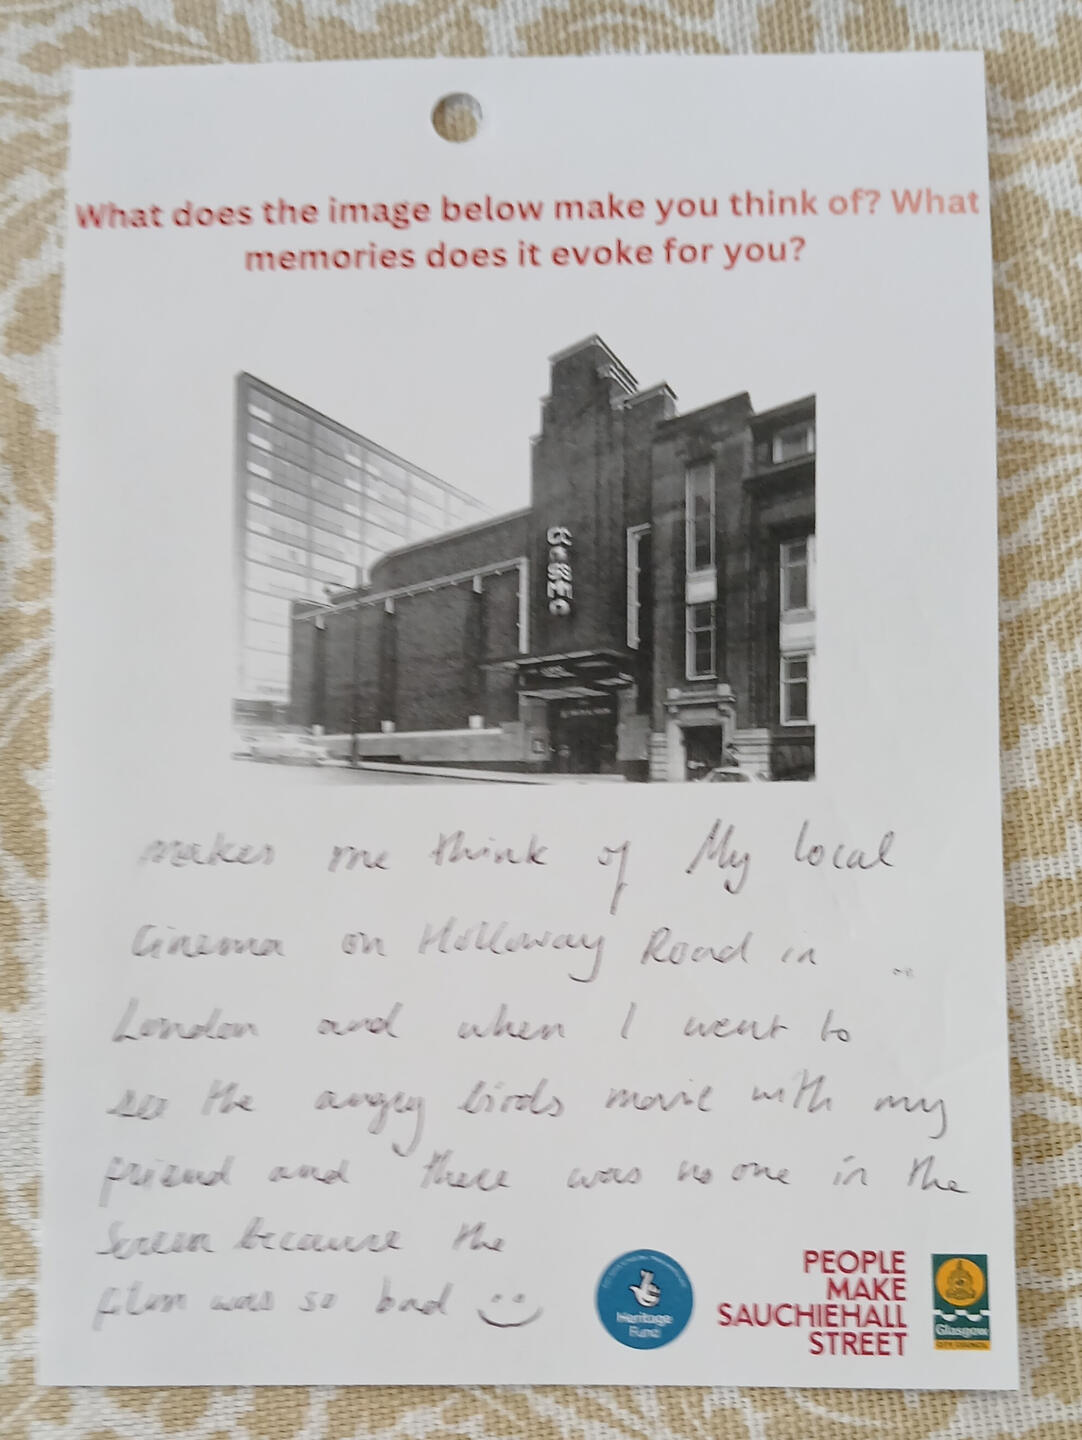 What does the image below make you think of? What
memories does it evoke for you?
COSMO
makes me think of My local
Cinema on Holloway Road in
London and when I went to
see the angry birds movie with my
friend and there was no one in the
screen because the
film was so bad
Heritage
Fund
PEOPLE
MAKE
SAUCHIEHALL
STREET
Glasgow
CITY COUNCIL